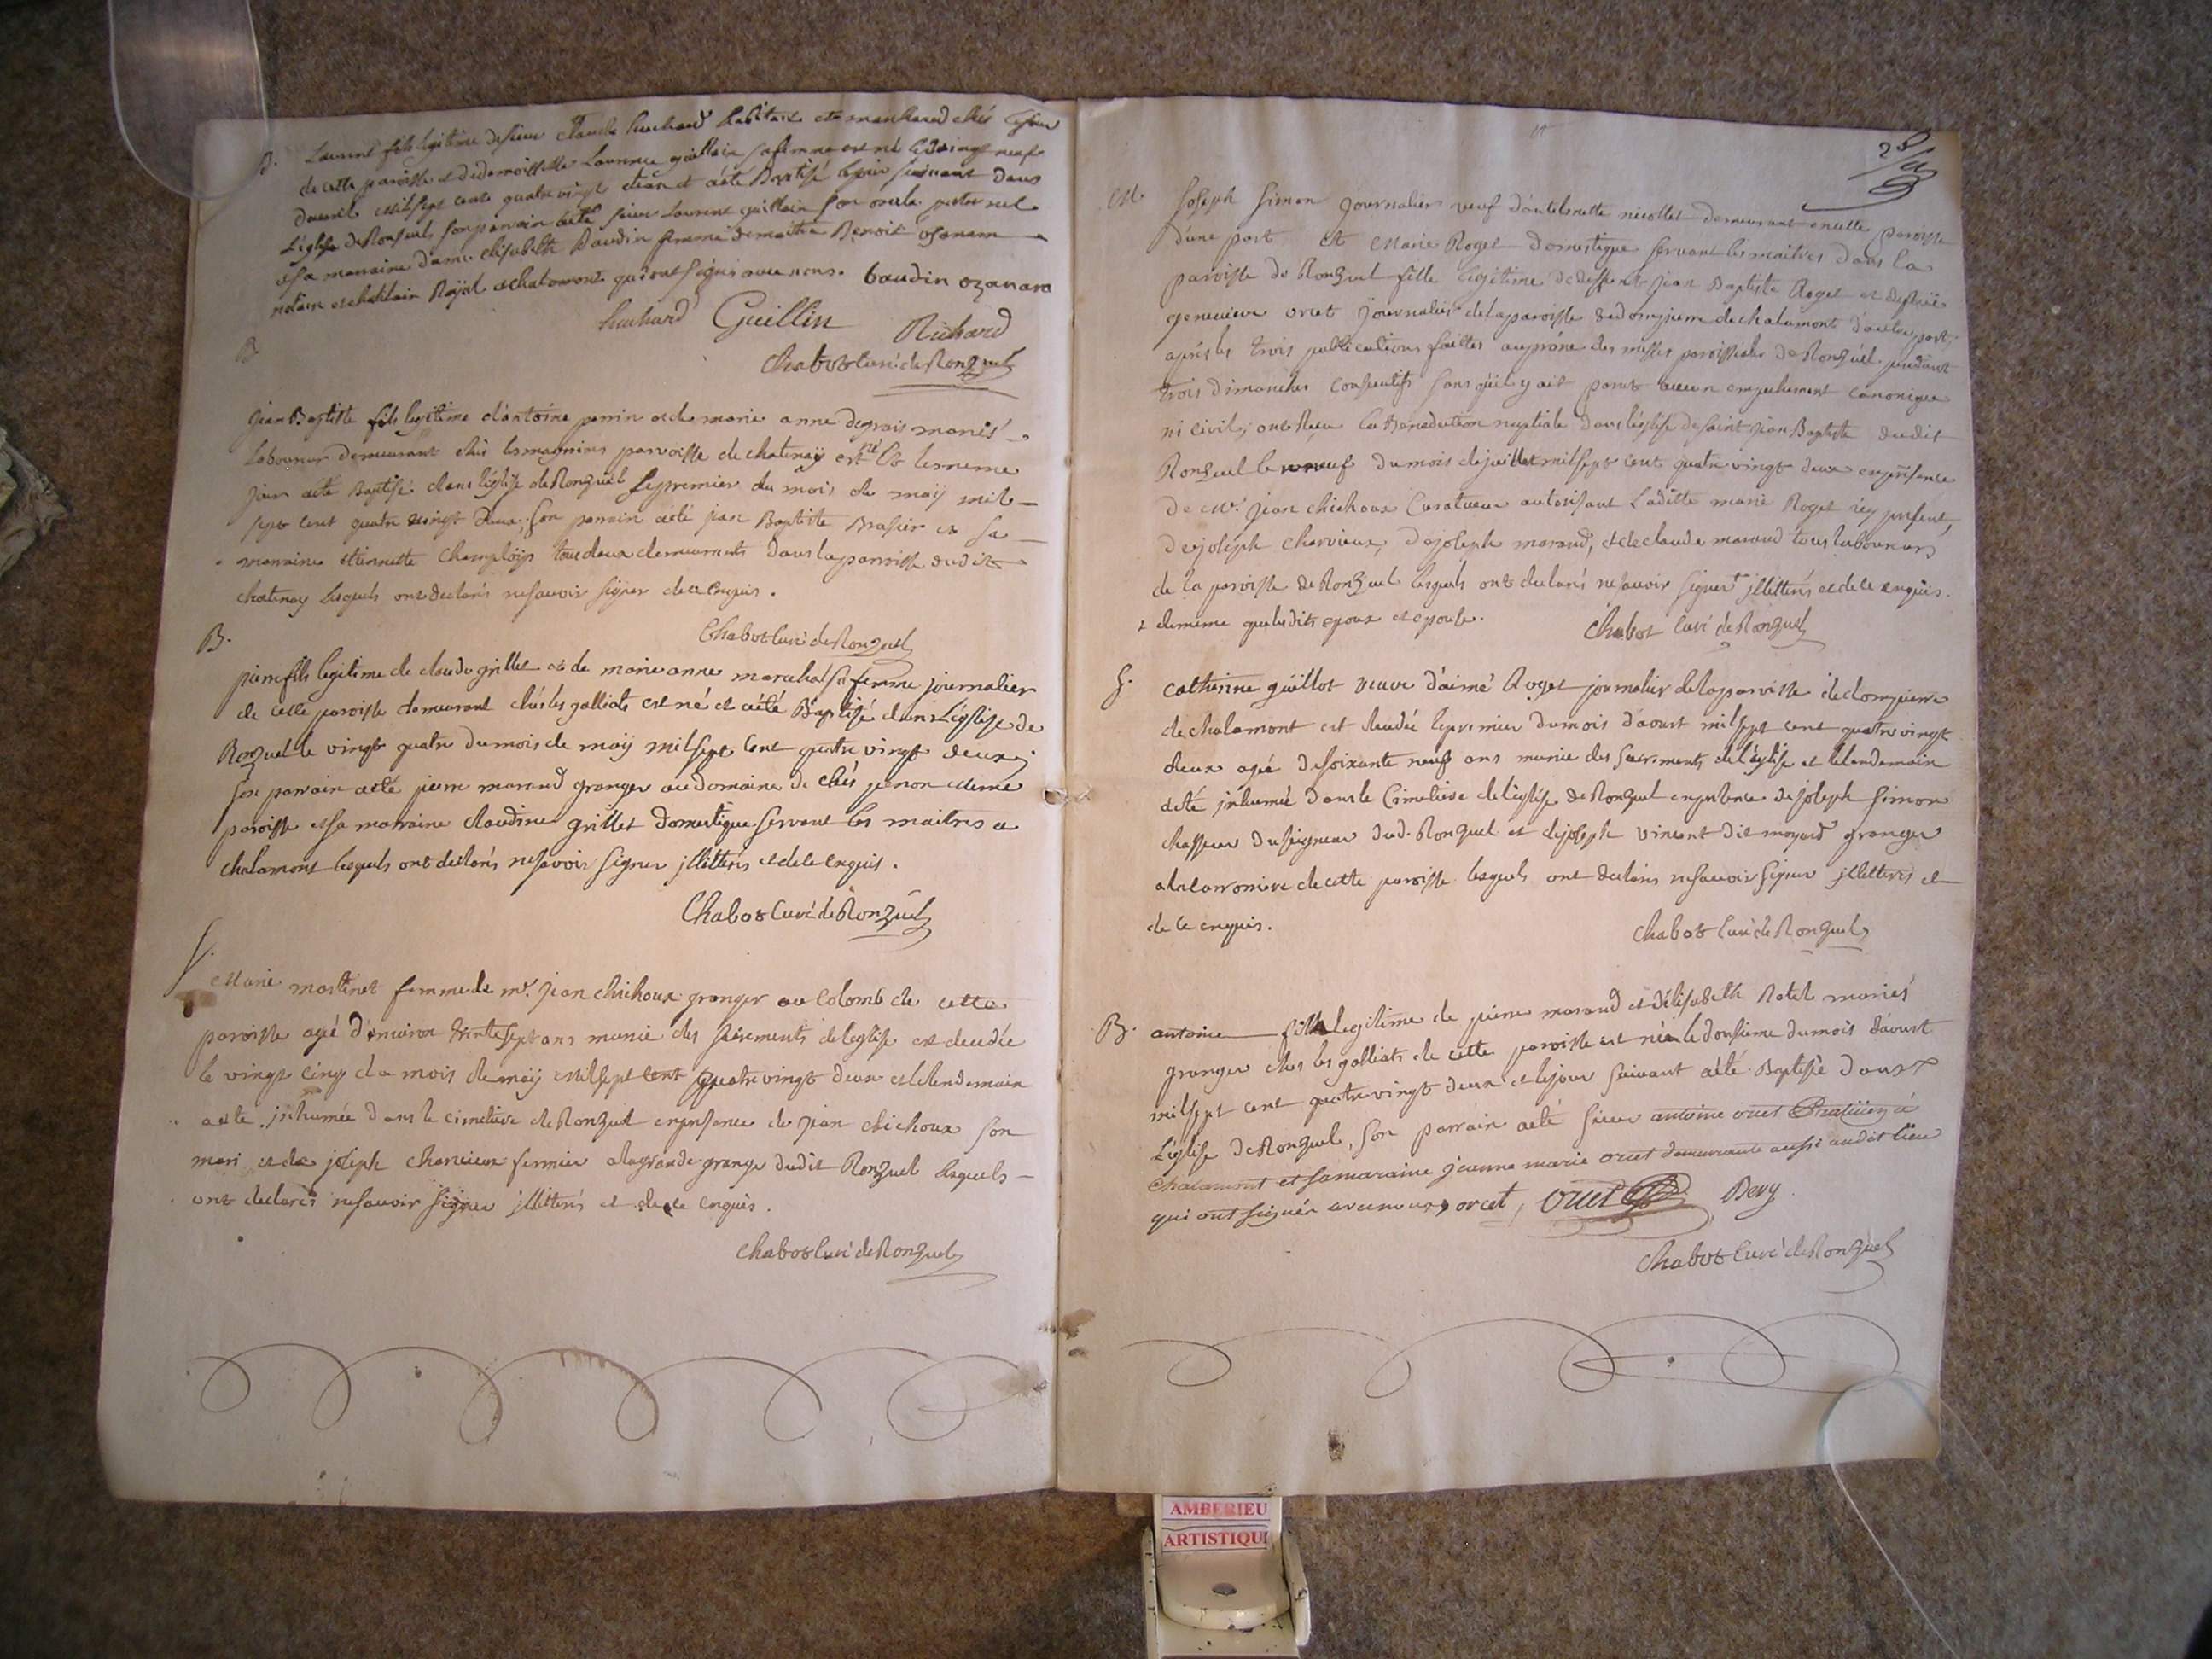 B.
Laurent fils legitime de sieur Claude huchard habitant et marchand chés
de cette paroisse et de demoisselle Laurence guillein sa femme est né le vingt neuf
d'avril mil sept cent quatre vingt deux et aété Baptisé le jour suivant dans
L'église de Ronzuel, son parrain aété sieur Laurent guillein son oncle paternel
et sa marraine dame elisabeth Baudin femme de maitre Benoit osanam
notaire et chatelain Royal a chalamont qui ont signé avec nous. baudin ozanam
huchard Guillin Richard
Chabot Curé de Ronzuel
B.
jean Baptiste fils legitime d'antoine perrin et de marie anne degrais mariés
Laboureur demeurant chés les magnins parroisse de chatenaÿ est né Et le meme
jour aété Baptisé dans l'église de Ronzuel le premier du mois de maÿ mil
sept cent quatre vingt deux, son parrain aété jean Baptiste Brasier et sa
marraine etiennette tous deux demeurants dans la parroisse dudit
chatenay Lesquels ont declarés ne savoir signer de ce enquis.
Chabot Curé de Ronzuel
B.
pierre fils legitime de claude grillet et de marie anne marechal sa femme journalier
de cette paroisse demeurant chés les galliats est né et aété Baptisé dans L'église de
Ronzuel le vingt quatre du mois de maÿ mil sept cent quatre vingt deux;
son parrain aété pierre marand granger au domaine de chés meme
paroisse et sa marraine claudine grillet domestique servant les maitres a
chalamont lesquels ont declarés ne savoir signer illiterés et de ce enquis.
Chabot Curé de Ronzuel
S.
Marie martinet femme de mr. jean chichoux granger au Colomb de cette
paroisse agé d'environ trente sept ans munie des sacrements de l'eglise est decedée
le vingt cinq du mois de maÿ mil sept cent quatre vingt deux et le lendemain
aete inhumée dans le cimetiere de Ronzuel en presence de jean chichoux son
mari et de joseph charvieux fermier a la grande grange dudit Ronzuel lesquels
ont declarés ne savoir signer illiterés et de ce enquis.
Chabot Curé de Ronzuel
M.
Joseph Simon journalier veuf d'antelmette nicollet demeurant en cette paroisse
d'une part et Marie Roget domestique servant les maitres dans la
paroisse de Ronzuel fille legitime de deffunt jean Baptiste Roget et de
genevieve orcet journalier de la paroisse de dompierre de chalamont d'autre part
aprés les trois publications faittes au prône des messes paroissiales de Ronzuel pendant
trois dimanches consecutifs sans qu'il y ait parut aucun empechement canonique
ni civil, ont Reçu la Benediction nuptiale dans l'église de saint jean Baptiste dudit
Ronzuel le neuf du mois de juillet mil sept cent quatre vingt deux en presence
de mr. jean chichoux Curateur autorisant Laditte marie Roget icy present,
de joseph charvieux, de joseph marand, et de claude marand tous laboureurs
de la paroisse de Ronzuel lesquels ont declarés ne savoir signer illiterés et de ce enquis.
de meme que lesdits epoux et epouse.
Chabot Curé de Ronzuel
S.
Catherine guillot veuve d'aimé Roget journalier de la parroisse de dompierre
de chalamont est decedée le premier du mois d'aoust mil sept cent quatre vingt
deux agée de soixante neuf ans munie des sacrements de l'église et le lendemain
aeté inhumée dans le Cimetiere de l'église de Ronzuel en presence de joseph Simon
chasseur du seigneur dud. Ronzuel et de joseph vincent dit moyard granger
de cette paroisse lesquels ont declarés ne savoir signer illiterés et
de ce enquis.
Chabot Curé de Ronzuel
B.
antoine fils legitime de pierre marand et d'élisabeth mariés
granger chés les galliats de cette paroisse est né le douzieme du mois d'aoust
mil sept cent quatre vingt deux et le jour suivant aété Baptisé dans
L'église de Ronzuel, son parrain aété sieur antoine orcet praticien à
chalamont et sa maraine jeanne marie orcet demeurante aussi audit lieu
qui ont signés avec nous, orcet, Orcet Bevy
Chabot Curé de Ronzuel
AMBERIEU
ARTISTIQU